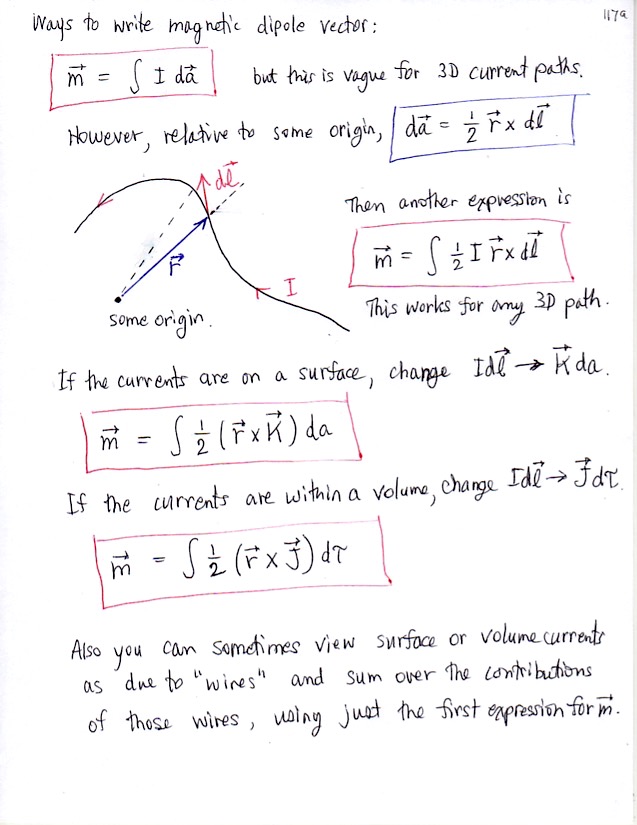 117a
Ways to write magnetic dipole vector:
m⃗ = ∫ I da⃗ but this is vague for 3D current paths.
However, relative to some origin, da⃗ = ½ r⃗ x dl⃗
dl⃗
Then another expression is
r⃗
m⃗ = ∫ ½ I r⃗ x dl⃗
I
some origin.
This works for any 3D path.
If the currents are on a surface, change Idl⃗ → K⃗ da.
m⃗ = ∫ ½ (r⃗ x K⃗) da
If the currents are within a volume, change Idl⃗ → J⃗dτ.
m⃗ = ∫ ½ (r⃗ x J⃗) dτ
Also you can sometimes view surface or volume currents
as due to "wires" and sum over the contributions
of those wires, using just the first expression for m⃗.